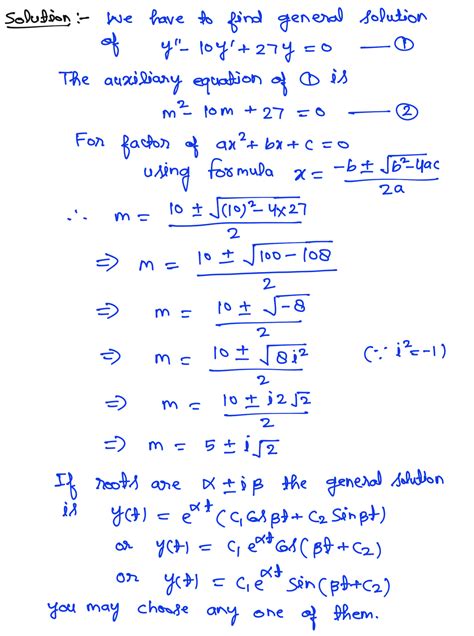 Solution :- We have to find general solution
of y'' - 10y' + 27y = 0 — ①
The auxiliary equation of ① is
m² - 10m + 27 = 0 — ②
For factor of ax² + bx + c = 0
using formula x = (-b ± √(b²-4ac))/2a
∴ m = (10 ± √((10)² - 4×27))/2
⇒ m = (10 ± √(100 - 108))/2
⇒ m = (10 ± √(-8))/2
⇒ m = (10 ± √(8i²))/2 (∵ i² = -1)
⇒ m = (10 ± i2√2)/2
⇒ m = 5 ± i√2
If roots are α ± iβ the general solution
is y(t) = e^(αt) (C₁ Cos βt + C₂ Sin βt)
or y(t) = C₁ e^(αt) Cos (βt + C₂)
or y(t) = C₁ e^(αt) Sin (βt + C₂)
you may choose any one of them.